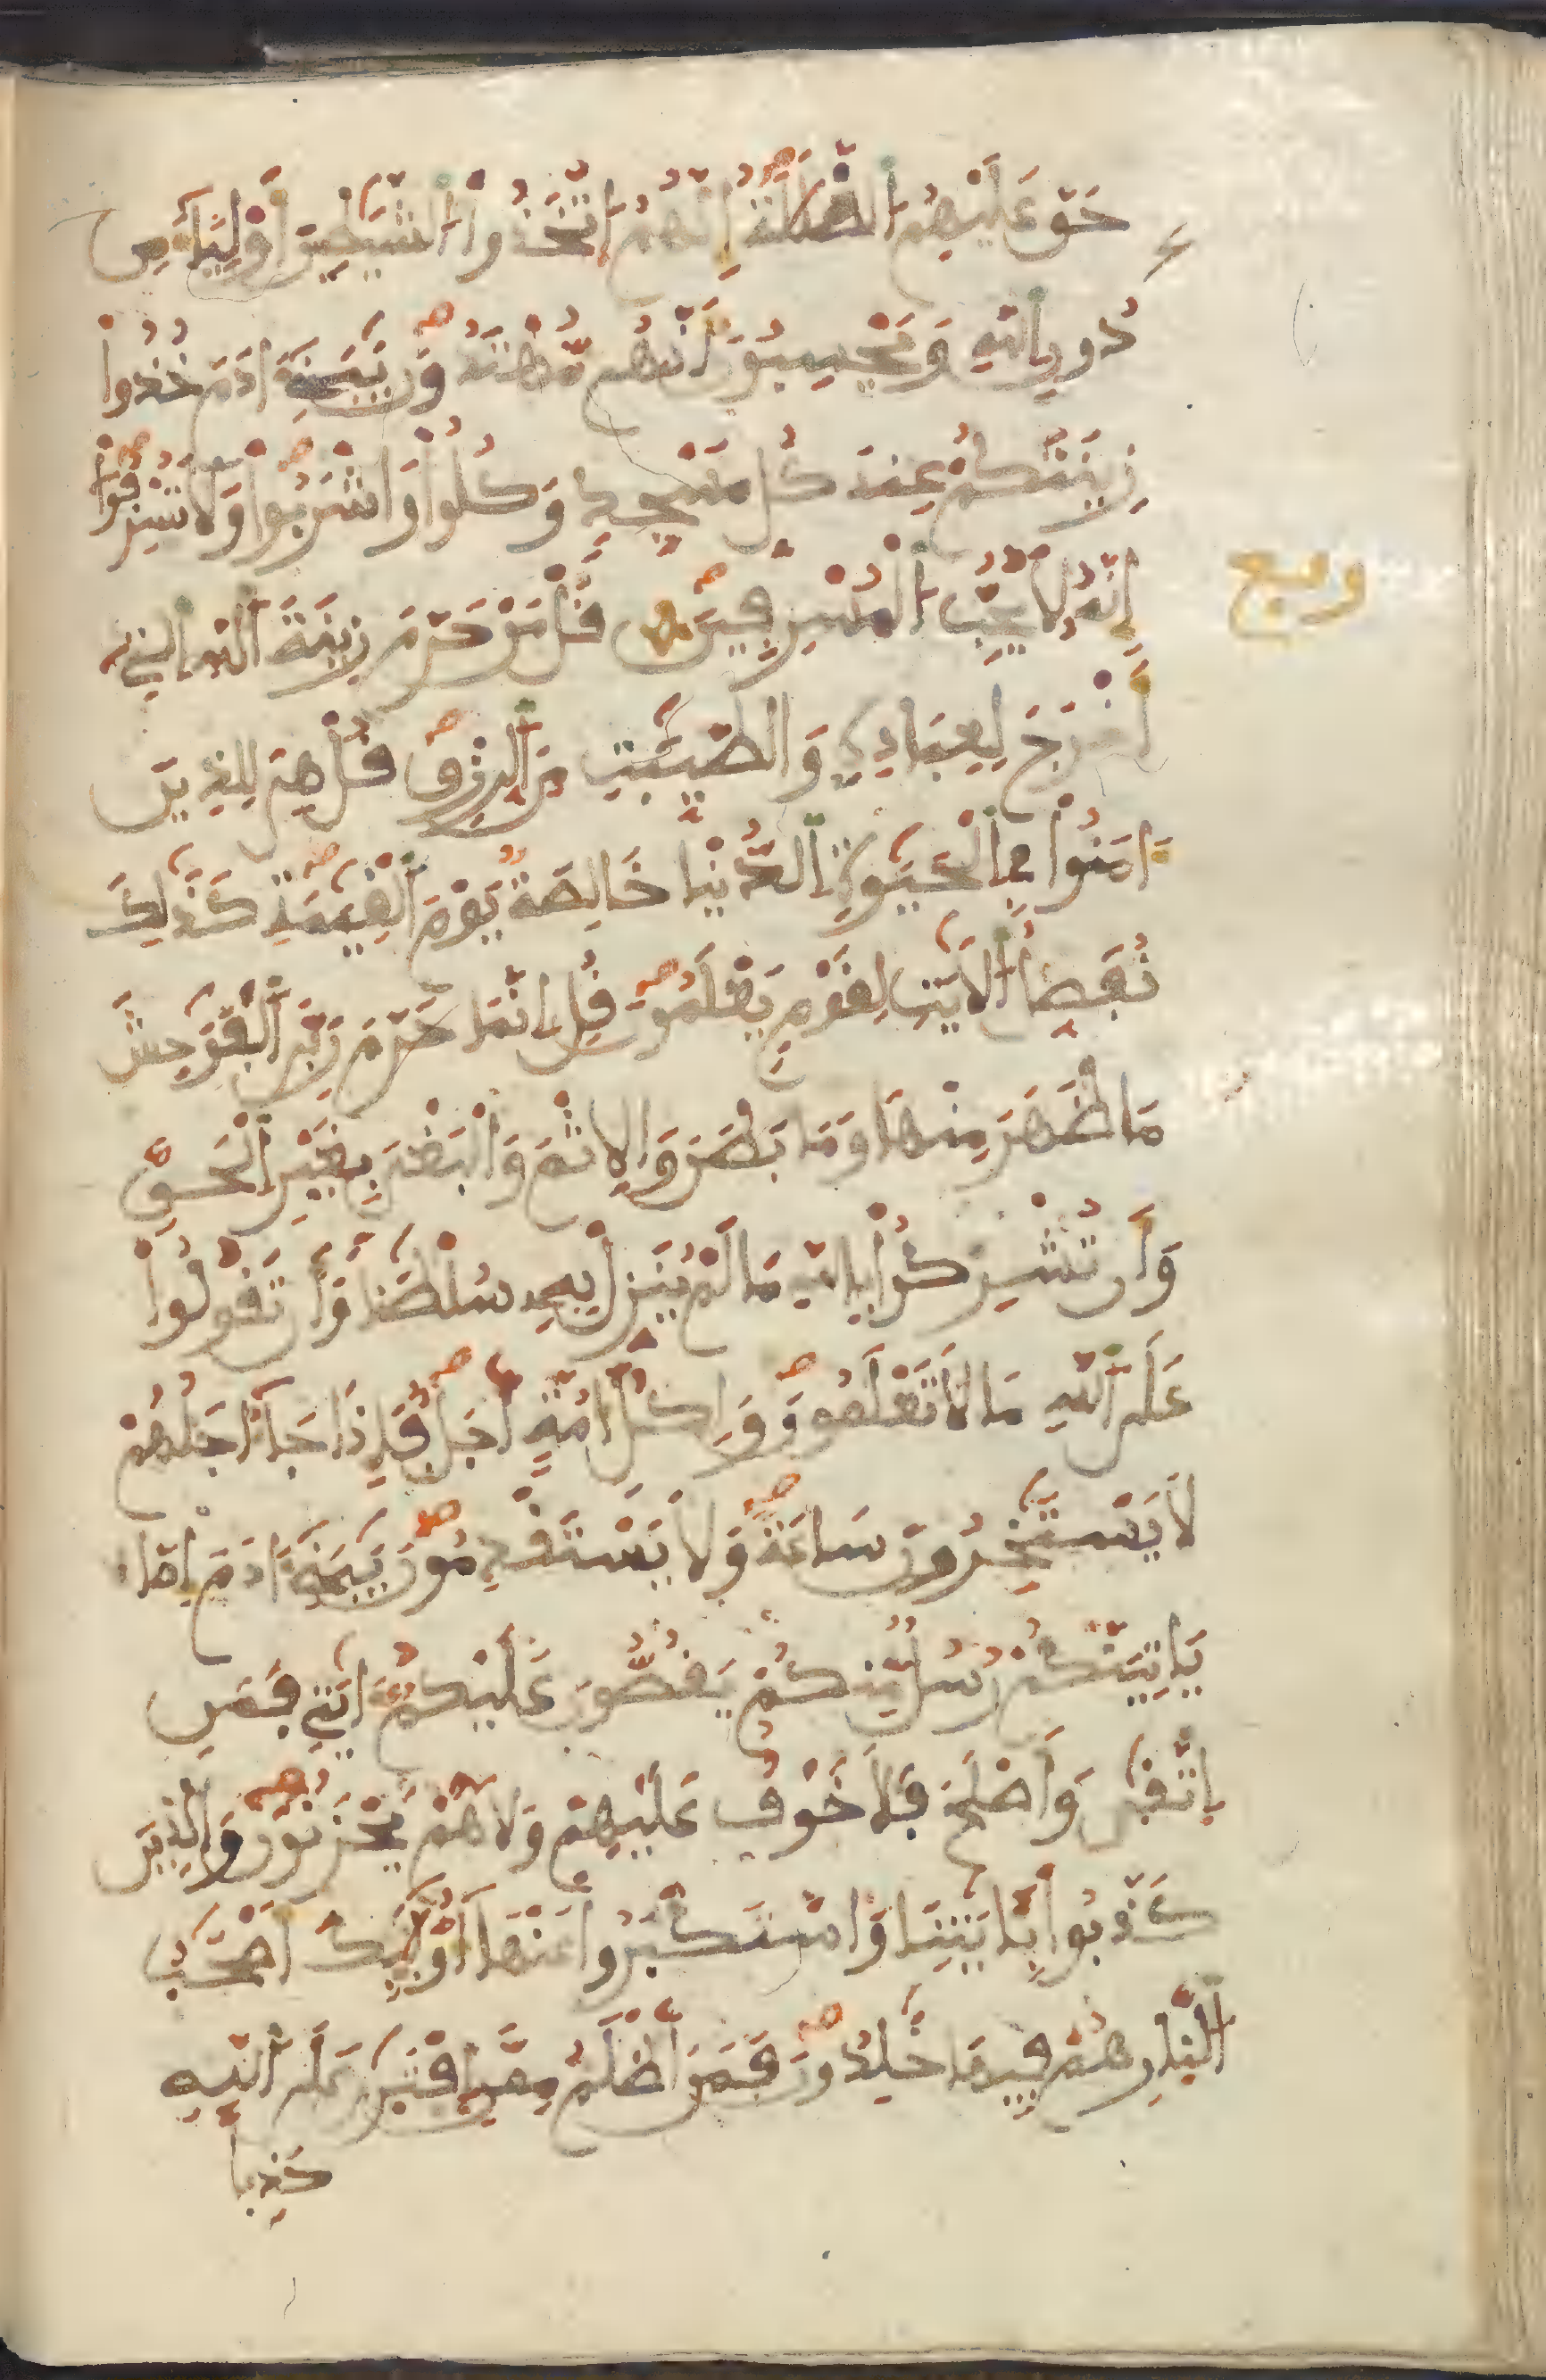 حَقَّ عَلَيْهِمُ الضَّلَٰلَةُ إِنَّهُمُ اتَّخَذُوا الشَّيَٰطِينَ أَوْلِيَاءَ مِن
دُونِ اللَّهِ وَيَحْسِبُونَ أَنَّهُم مُّهْتَدُونَ يَٰبَنِي ءَادَمَ خُذُوا
زِينَتَكُمْ عِندَ كُلِّ مَسْجِدٍ وَكُلُوا وَاشْرَبُوا وَلَا تُسْرِفُوا
إِنَّهُ لَا يُحِبُّ الْمُسْرِفِينَ قُلْ مَنْ حَرَّمَ زِينَةَ اللَّهِ الَّتِي
ربع
أَخْرَجَ لِعِبَادِهِ وَالطَّيِّبَٰتِ مِنَ الرِّزْقِ قُلْ هِيَ لِلَّذِينَ
ءَامَنُوا فِي الْحَيَوٰةِ الدُّنْيَا خَالِصَةٌ يَوْمَ الْقِيَٰمَةِ كَذَٰلِكَ
نُفَصِّلُ الْأَيَٰتِ لِقَوْمٍ يَعْلَمُونَ قُلْ إِنَّمَا حَرَّمَ رَبِّيَ الْفَوَٰحِشَ
مَا ظَهَرَ مِنْهَا وَمَا بَطَنَ وَالْإِثْمَ وَالْبَغْيَ بِغَيْرِ الْحَقِّ
وَأَن تُشْرِكُوا بِاللَّهِ مَا لَمْ يُنَزِّلْ بِهِ سُلْطَٰنًا وَأَن تَقُولُوا
عَلَى اللَّهِ مَا لَا تَعْلَمُونَ وَلِكُلِّ أُمَّةٍ أَجَلٌ فَإِذَا جَاءَ اجَلُهُمْ
لَا يَسْتَٰخِرُونَ سَاعَةً وَلَا يَسْتَقْدِمُونَ يَٰبَنِي ءَادَمَ إِمَّا
يَاتِيَنَّكُمْ رُسُلٌ مِّنكُمْ يَقُصُّونَ عَلَيْكُمُ ءَايَٰتِي فَمَنِ
اِتَّقَىٰ وَأَصْلَحَ فَلَا خَوْفٌ عَلَيْهِمْ وَلَا هُمْ يَحْزَنُونَ وَالَّذِينَ
كَذَّبُوا بِـَٔايَٰتِنَا وَاسْتَكْبَرُوا عَنْهَا أُوْلَٰئِكَ أَصْحَٰبُ
النَّارِ هُمْ فِيهَا خَٰلِدُونَ فَمَنْ أَظْلَمُ مِمَّنِ افْتَرَىٰ عَلَى اللَّهِ
كَذِبًا